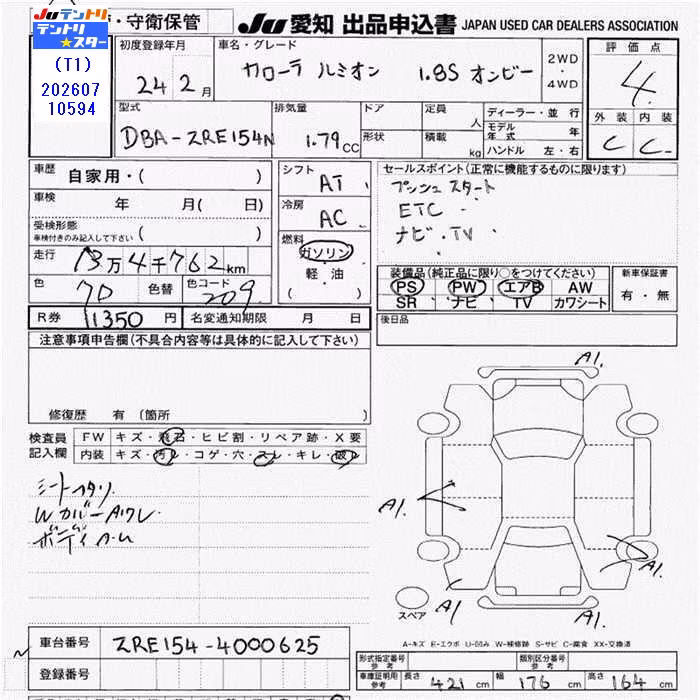 ・守衛保管
Ju 愛知 出品申込書 JAPAN USED CAR DEALERS ASSOCIATION
テントリ
テントリ★スター
(T1)
202607
10594
初度登録年月
24 2 月
車名・グレード
カローラ ルミオン 1.8S オンビー
2WD
・
4WD
評価点
4
外装 内装
C C
型式
DBA-ZRE154N
排気量
1.79 CC
ドア
形状
定員 人
積載 kg
ディーラー・並行
モデル年式 年
ハンドル 左・右
車歴 自家用・( )
車検 年 月( 日)
受検形態
車検付きのみ記入して下さい ( )
走行 13万4千762km
色 色替 色コード 209
シフト AT
冷房 AC
燃料
ガソリン
軽・油
( )
セールスポイント(正常に機能するものに限ります)
プッシュスタート
ETC
ナビ・TV
装備品(純正品に限り○をつけてください)
PS PW エアB AW
SR ナビ TV カワシート
新車保証書
有・無
R券 11350 円 名変通知期限 月 日
後日品
注意事項申告欄(不具合内容等は具体的に記入して下さい)
修復歴 有 (箇所 )
検査員
記入欄
FW キズ・飛石・ヒビ割・リペア跡・X要
内装 キズ・汚レ・コゲ・穴・スレ・キレ・破レ
A1.
A1.
A1.
A1
A1.
スペア
A-キズ E-エクボ U-凹み W-補修跡 S-サビ C-腐食 XX-交換済
車台番号 ZRE154-4000625
登録番号
形式指定番号 参考
類別区分番号 参考
車庫証明用 参考 長さ 421 cm 幅 176 cm 高さ 164 cm